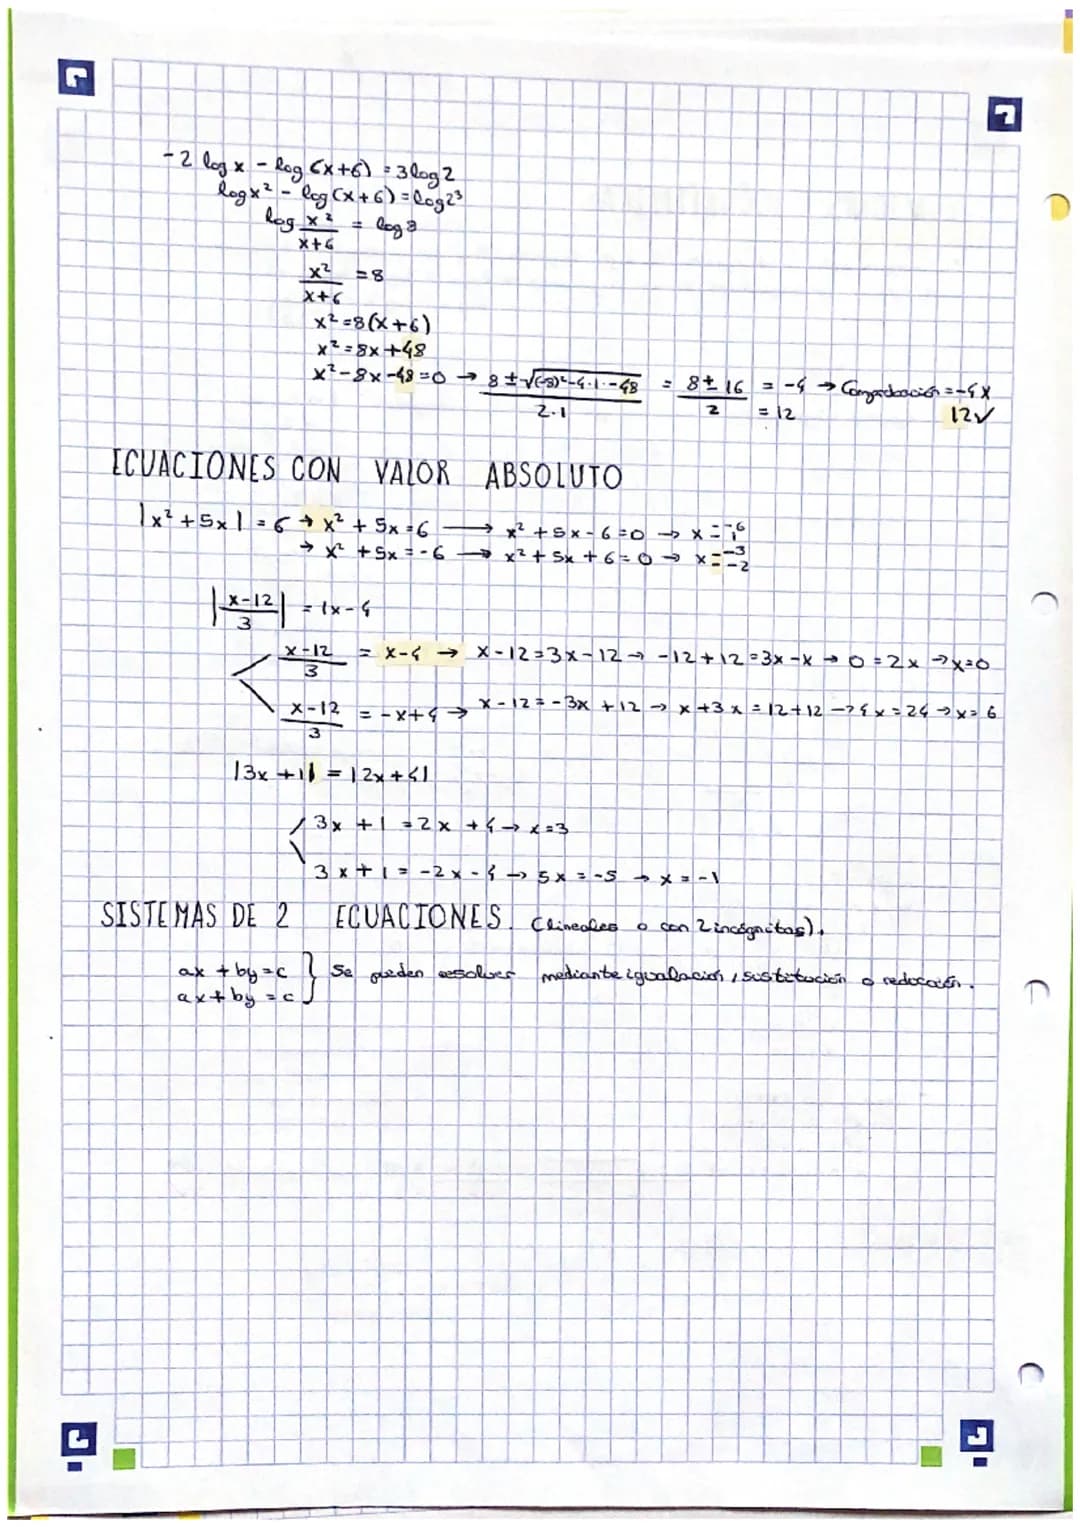 - 2 log x - log (x+6) = 3 log 2
log x² - log (x+6) = log 2³
log x²/x+6 = log 8
x²/x+6 = 8
x² = 8(x+6)
x² = 8x + 48
x² - 8x - 48 = 0 → 8 ± √(-8)² - 4·1·-48 / 2·1 = 8 ± 16 / 2 = -4 → Comprobación = -4 X
= 12 12 ✓
ECUACIONES CON VALOR ABSOLUTO
|x² + 5x| = 6 → x² + 5x = 6 → x² + 5x - 6 = 0 → x = -6 = 1
→ x² + 5x = -6 → x² + 5x + 6 = 0 → x = -3 = -2
|x-12 / 3| = |x-4
x-12 / 3 = x-4 → x - 12 = 3x - 12 → -12 + 12 = 3x - x → 0 = 2x → x = 0
x-12 / 3 = -x+4 → x - 12 = -3x + 12 → x + 3x = 12 + 12 → 4x = 24 → x = 6
|3x + 1| = |2x + 4|
3x + 1 = 2x + 4 → x = 3
3x + 1 = -2x - 4 → 5x = -5 → x = -1
SISTEMAS DE 2 ECUACIONES. (lineales o con 2 incógnitas).
ax + by = c } Se pueden resolver mediante igualación, sustitución o reducción.
ax + by = c